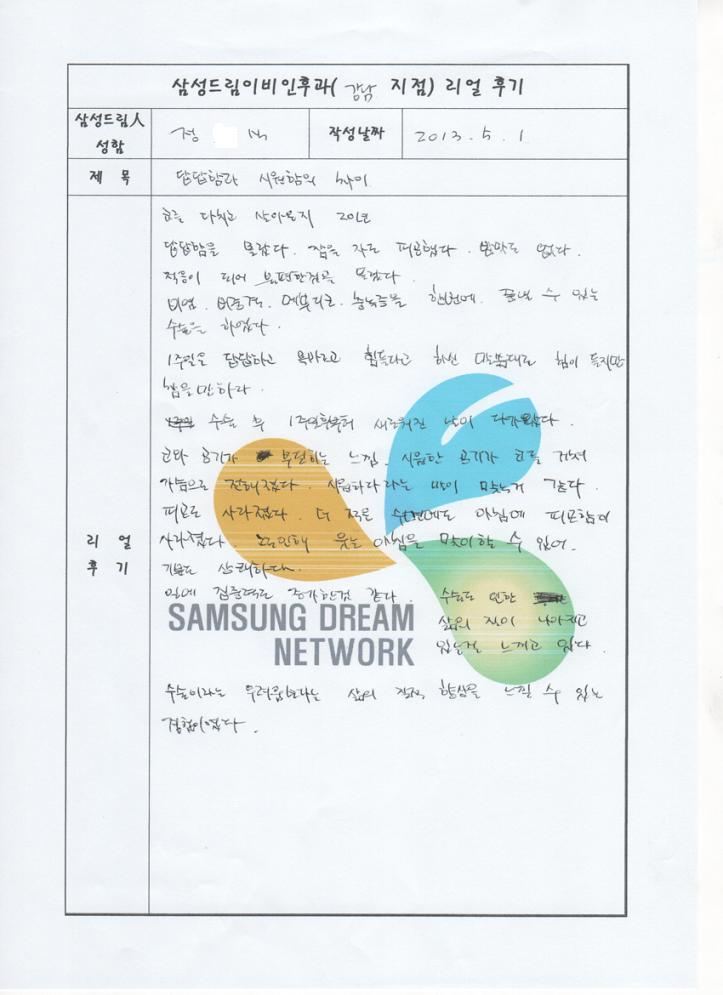 삼성드림이비인후과( 강남 지점) 리얼 후기
삼성드림人
성함
정
작성날짜
2013. 5. 1
제 목
답답함과 시원함의 차이
리 얼
후 기
코를 다치고 살아온지 20년
답답함을 몰랐다. 잠을 자도 피곤했다. 밥맛도 없다.
적응이 되어 불편한점을 몰랐다
비염. 비중격. 축농증을 한번에 끝낼 수 있는
수술을 하였다.
1주일은 답답하고 힘들다고 하신 말씀대로 힘이 들지만
참을만 하다
수술 후 1주일후부터 새로워진 날이 다가왔다.
코와 공기가 느낌. 시원한 공기가 코를 거쳐
가슴으로 전해졌다. 시원하다라는 말이 맞는거 같다.
피로도 사라졌다. 더 적은 수면에도 아침에 피곤함이
사라졌다. 로인해 웃는 아침을 맞이할 수 있어.
기분도 상쾌하다.
일에 집중력도 증가한것 같다.
수술로 인한
삶의 질이 나아지고
있는걸 느끼고 있다.
SAMSUNG DREAM
NETWORK
수술이라는 두려움보다는 삶의 질의 향상을 느낄 수 있는
경험이었다.